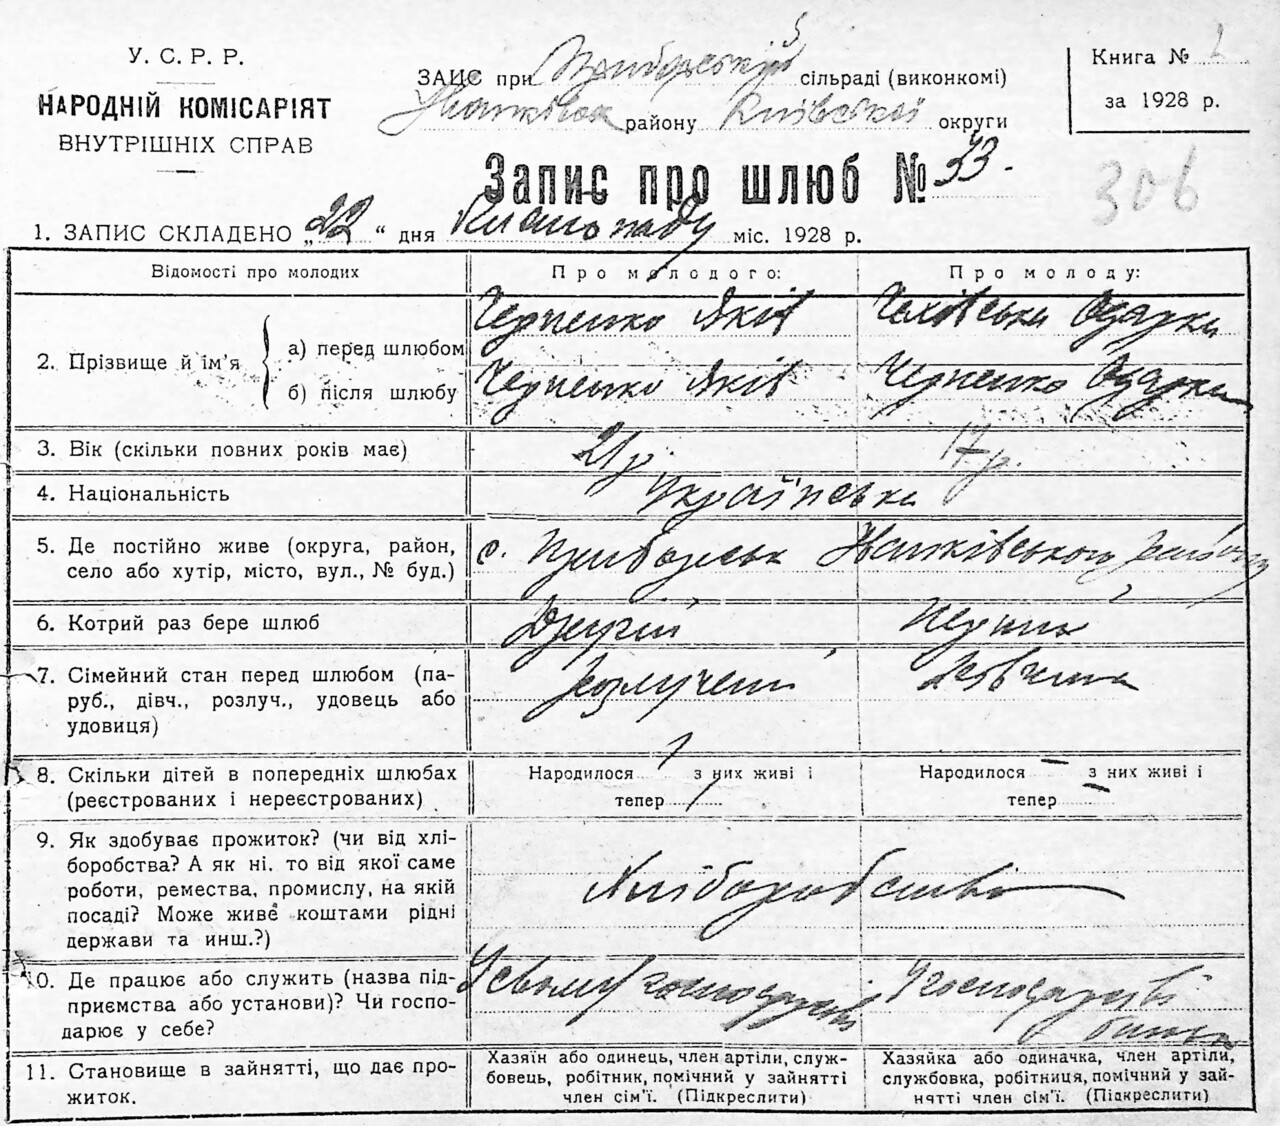 У. С. Р. Р.
НАРОДНІЙ КОМІСАРІЯТ
ВНУТРІШНІХ СПРАВ
ЗАГС при Приборській сільраді (виконкомі)
району Київської округи
Книга №
за 1928 р.
Запис про шлюб № 33.
306
1. ЗАПИС СКЛАДЕНО „22“ дня Листопаду міс. 1928 р.
Відомості про молодих
Про молодого:
Про молоду:
2. Прізвище й ім'я
а) перед шлюбом
Черненко Яків
Одарка
б) після шлюбу
Черненко Яків
Черненко Одарка
3. Вік (скільки повних років має)
21 р.
17 р.
4. Національність
українська
5. Де постійно живе (округа, район,
село або хутір, місто, вул., № буд.)
с. Приборськ Іванківського району
6. Котрий раз бере шлюб
Другий
Перший
7. Сімейний стан перед шлюбом (па-
руб., дівч., розлуч., удовець або
удовиця)
розлучений
дівчина
8. Скільки дітей в попередніх шлюбах
(реєстрованих і нереєстрованих)
Народилося 1 з них живі і
тепер 1
Народилося — з них живі і
тепер —
9. Як здобуває прожиток? (чи від хлі-
боробства? А як ні, то від якої саме
роботи, ремества, промислу, на якій
посаді? Може живе коштами рідні
держави та инш.?)
Хліборобство
10. Де працює або служить (назва під-
приємства або установи)? Чи госпо-
дарює у себе?
У свому господарстві
У господарстві
батька
11. Становище в зайнятті, що дає про-
житок.
Хазяїн або одинець, член артіли, служ-
бовець, робітник, помічний у зайнятті
член сім'ї. (Підкреслити)
Хазяйка або одиначка, член артіли,
службовка, робітниця, помічний у зай-
нятті член сім'ї. (Підкреслити)